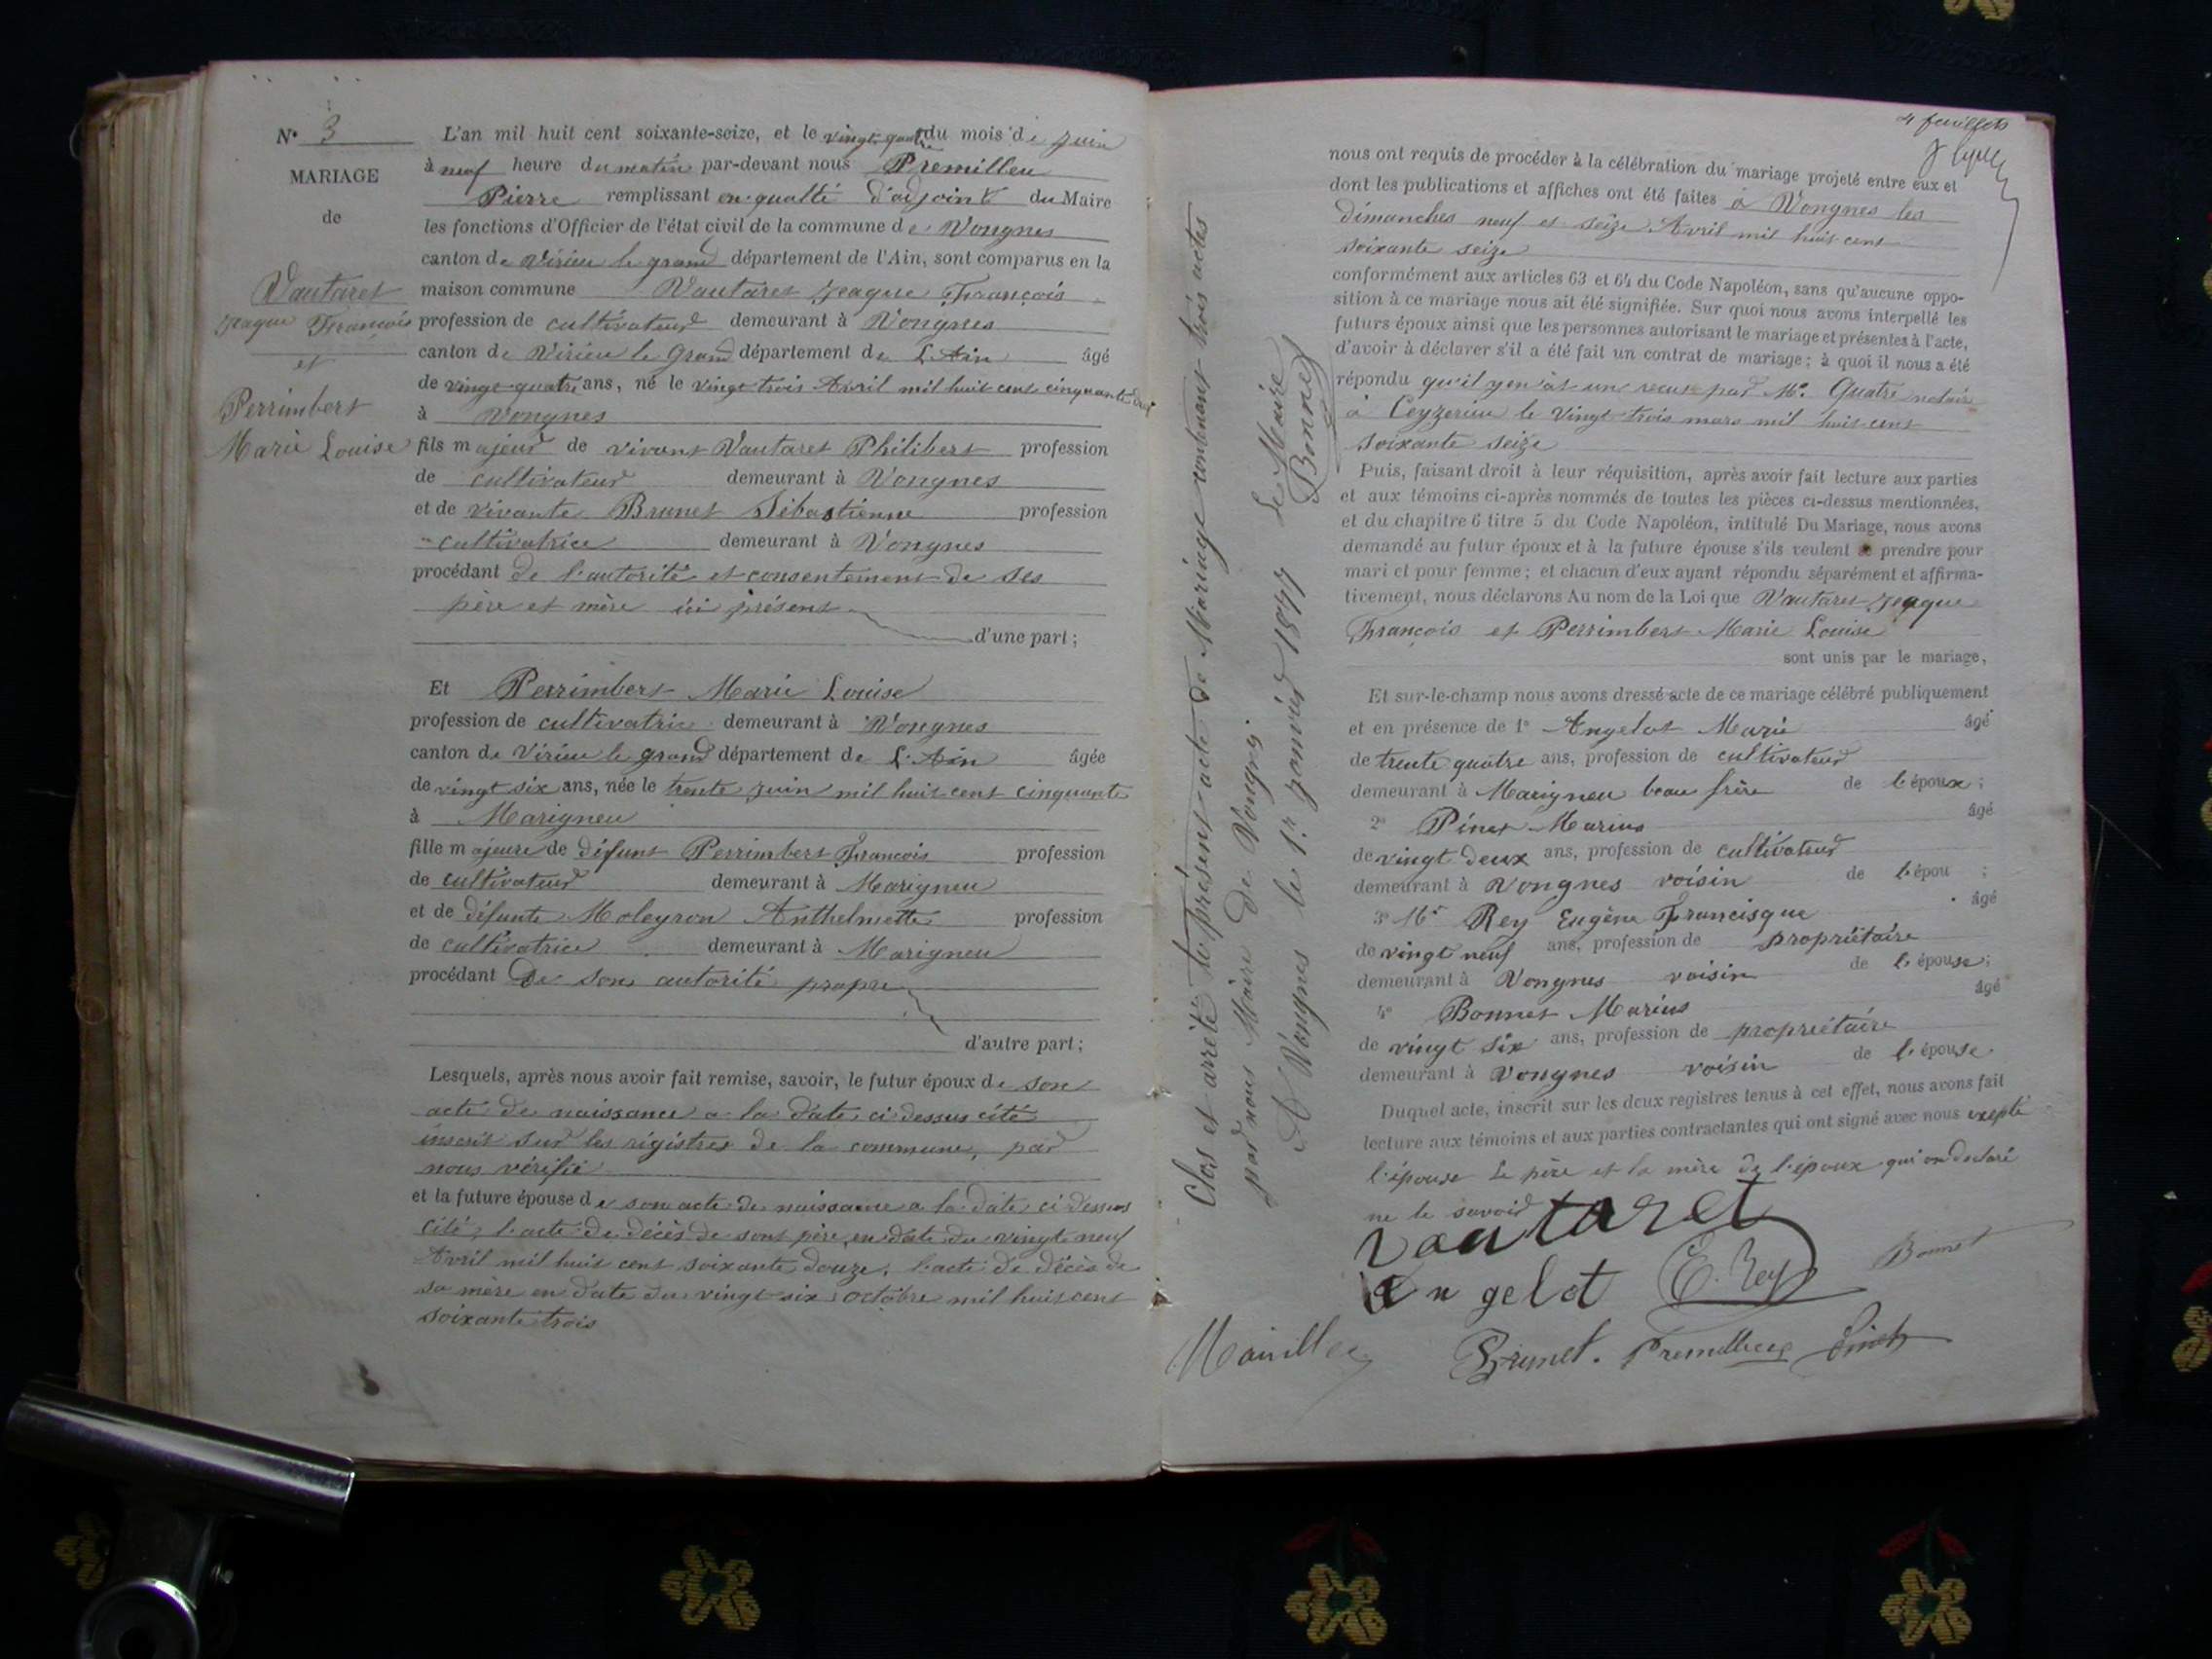 N° 3
MARIAGE
de
Vautaret
Jaque François
et
Perrimbert
Marie Louise
L'an mil huit cent soixante-seize, et le vingt quatre du mois de juin
à neuf heure du matin par-devant nous Premilleu
Pierre remplissant en qualté d'adjoint du Maire
les fonctions d'Officier de l'état civil de la commune de Vongnes
canton de Virieu le grand département de l'Ain, sont comparus en la
maison commune Vautaret Jaque François
profession de cultivateur demeurant à Vongnes
canton de Virieu le Grand département de L'Ain âgé
de vingt quatre ans, né le vingt trois Avril mil huit cent cinquante deux
à Vongnes
fils majeur de vivant Vautaret Philibert profession
de cultivateur demeurant à Vongnes
et de vivante Brunet Sébastienne profession
cultivatrice demeurant à Vongnes
procédant de l'autorité et consentement de ses
père et mère ici présent
d'une part ;
Et Perrimbert Marie Louise
profession de cultivatrice demeurant à Vongnes
canton de Virieu le grand département de L'Ain âgée
de vingt six ans, née le trente juin mil huit cent cinquante
à Marigneu
fille majeure de défunt Perrimbert François profession
de cultivateur demeurant à Marigneu
et de défunte Moleyron Anthelmette profession
de cultivatrice demeurant à Marigneu
procédant De son autorité propre
d'autre part ;
Lesquels, après nous avoir fait remise, savoir, le futur époux de son
acte de naissance a la date ci dessus cité
inscrit sur les régistres de la commune, par
nous vérifié
et la future épouse de son acte de naissance a la date ci dessus
cité, l'acte de décès de sont père, en date du vingt neuf
Avril mil huit cent soixante douze, l'acte de décès de
sa mère en date du vingt six octobre mil huit cent
soixante trois
Clos et arrêté le présent acte de Mariage contenant trois actes
par nous Maire de Vongnes
A Vongnes le 1er janvier 1877 Le Maire
Bonnet
4 feuillets
nous ont requis de procéder à la célébration du mariage projeté entre eux et
dont les publications et affiches ont été faites à Vongnes les
dimanches neuf et seize Avril mil huit cent
soixante seize
conformément aux articles 63 et 64 du Code Napoléon, sans qu'aucune oppo-
sition à ce mariage nous ait été signifiée. Sur quoi nous avons interpellé les
futurs époux ainsi que les personnes autorisant le mariage et présentes à l'acte,
d'avoir à déclarer s'il a été fait un contrat de mariage ; à quoi il nous a été
répondu qu'il y en at un recus par Me. Quatre notaire
à Ceyzerieu le Vingt trois mars mil huit cent
soixante seize
Puis, faisant droit à leur réquisition, après avoir fait lecture aux parties
et aux témoins ci-après nommés de toutes les pièces ci-dessus mentionnées,
et du chapitre 6 titre 5 du Code Napoléon, intitulé Du Mariage, nous avons
demandé au futur époux et à la future épouse s'ils veulent se prendre pour
mari et pour femme ; et chacun d'eux ayant répondu séparément et affirma-
tivement, nous déclarons Au nom de la Loi que Vautaret Jaque
François et Perrimbert Marie Louise
sont unis par le mariage,
Et sur-le-champ nous avons dressé acte de ce mariage célébré publiquement
et en présence de 1° Angelot Marie âgé
de trente quatre ans, profession de cultivateur
demeurant à Marigneu beau frère de l'époux ;
2° Pinet Marius âgé
de vingt deux ans, profession de cultivateur
demeurant à Vongnes voisin de l'épou ;
3° Mr Rey Eugène Francisque âgé
de vingt neuf ans, profession de propriétaire
demeurant à Vongnes voisin de l'épouse ;
4° Bonnet Marius âgé
de vingt six ans, profession de propriétaire
demeurant à Vongnes voisin de l'épouse
Duquel acte, inscrit sur les deux registres tenus à cet effet, nous avons fait
lecture aux témoins et aux parties contractantes qui ont signé avec nous exepté
l'épouse le père et la mère de l'époux qui on declaré
ne le savoir
Vautaret
Angelot E. Rey Bonnet
Brunet. Premilleu Pinet